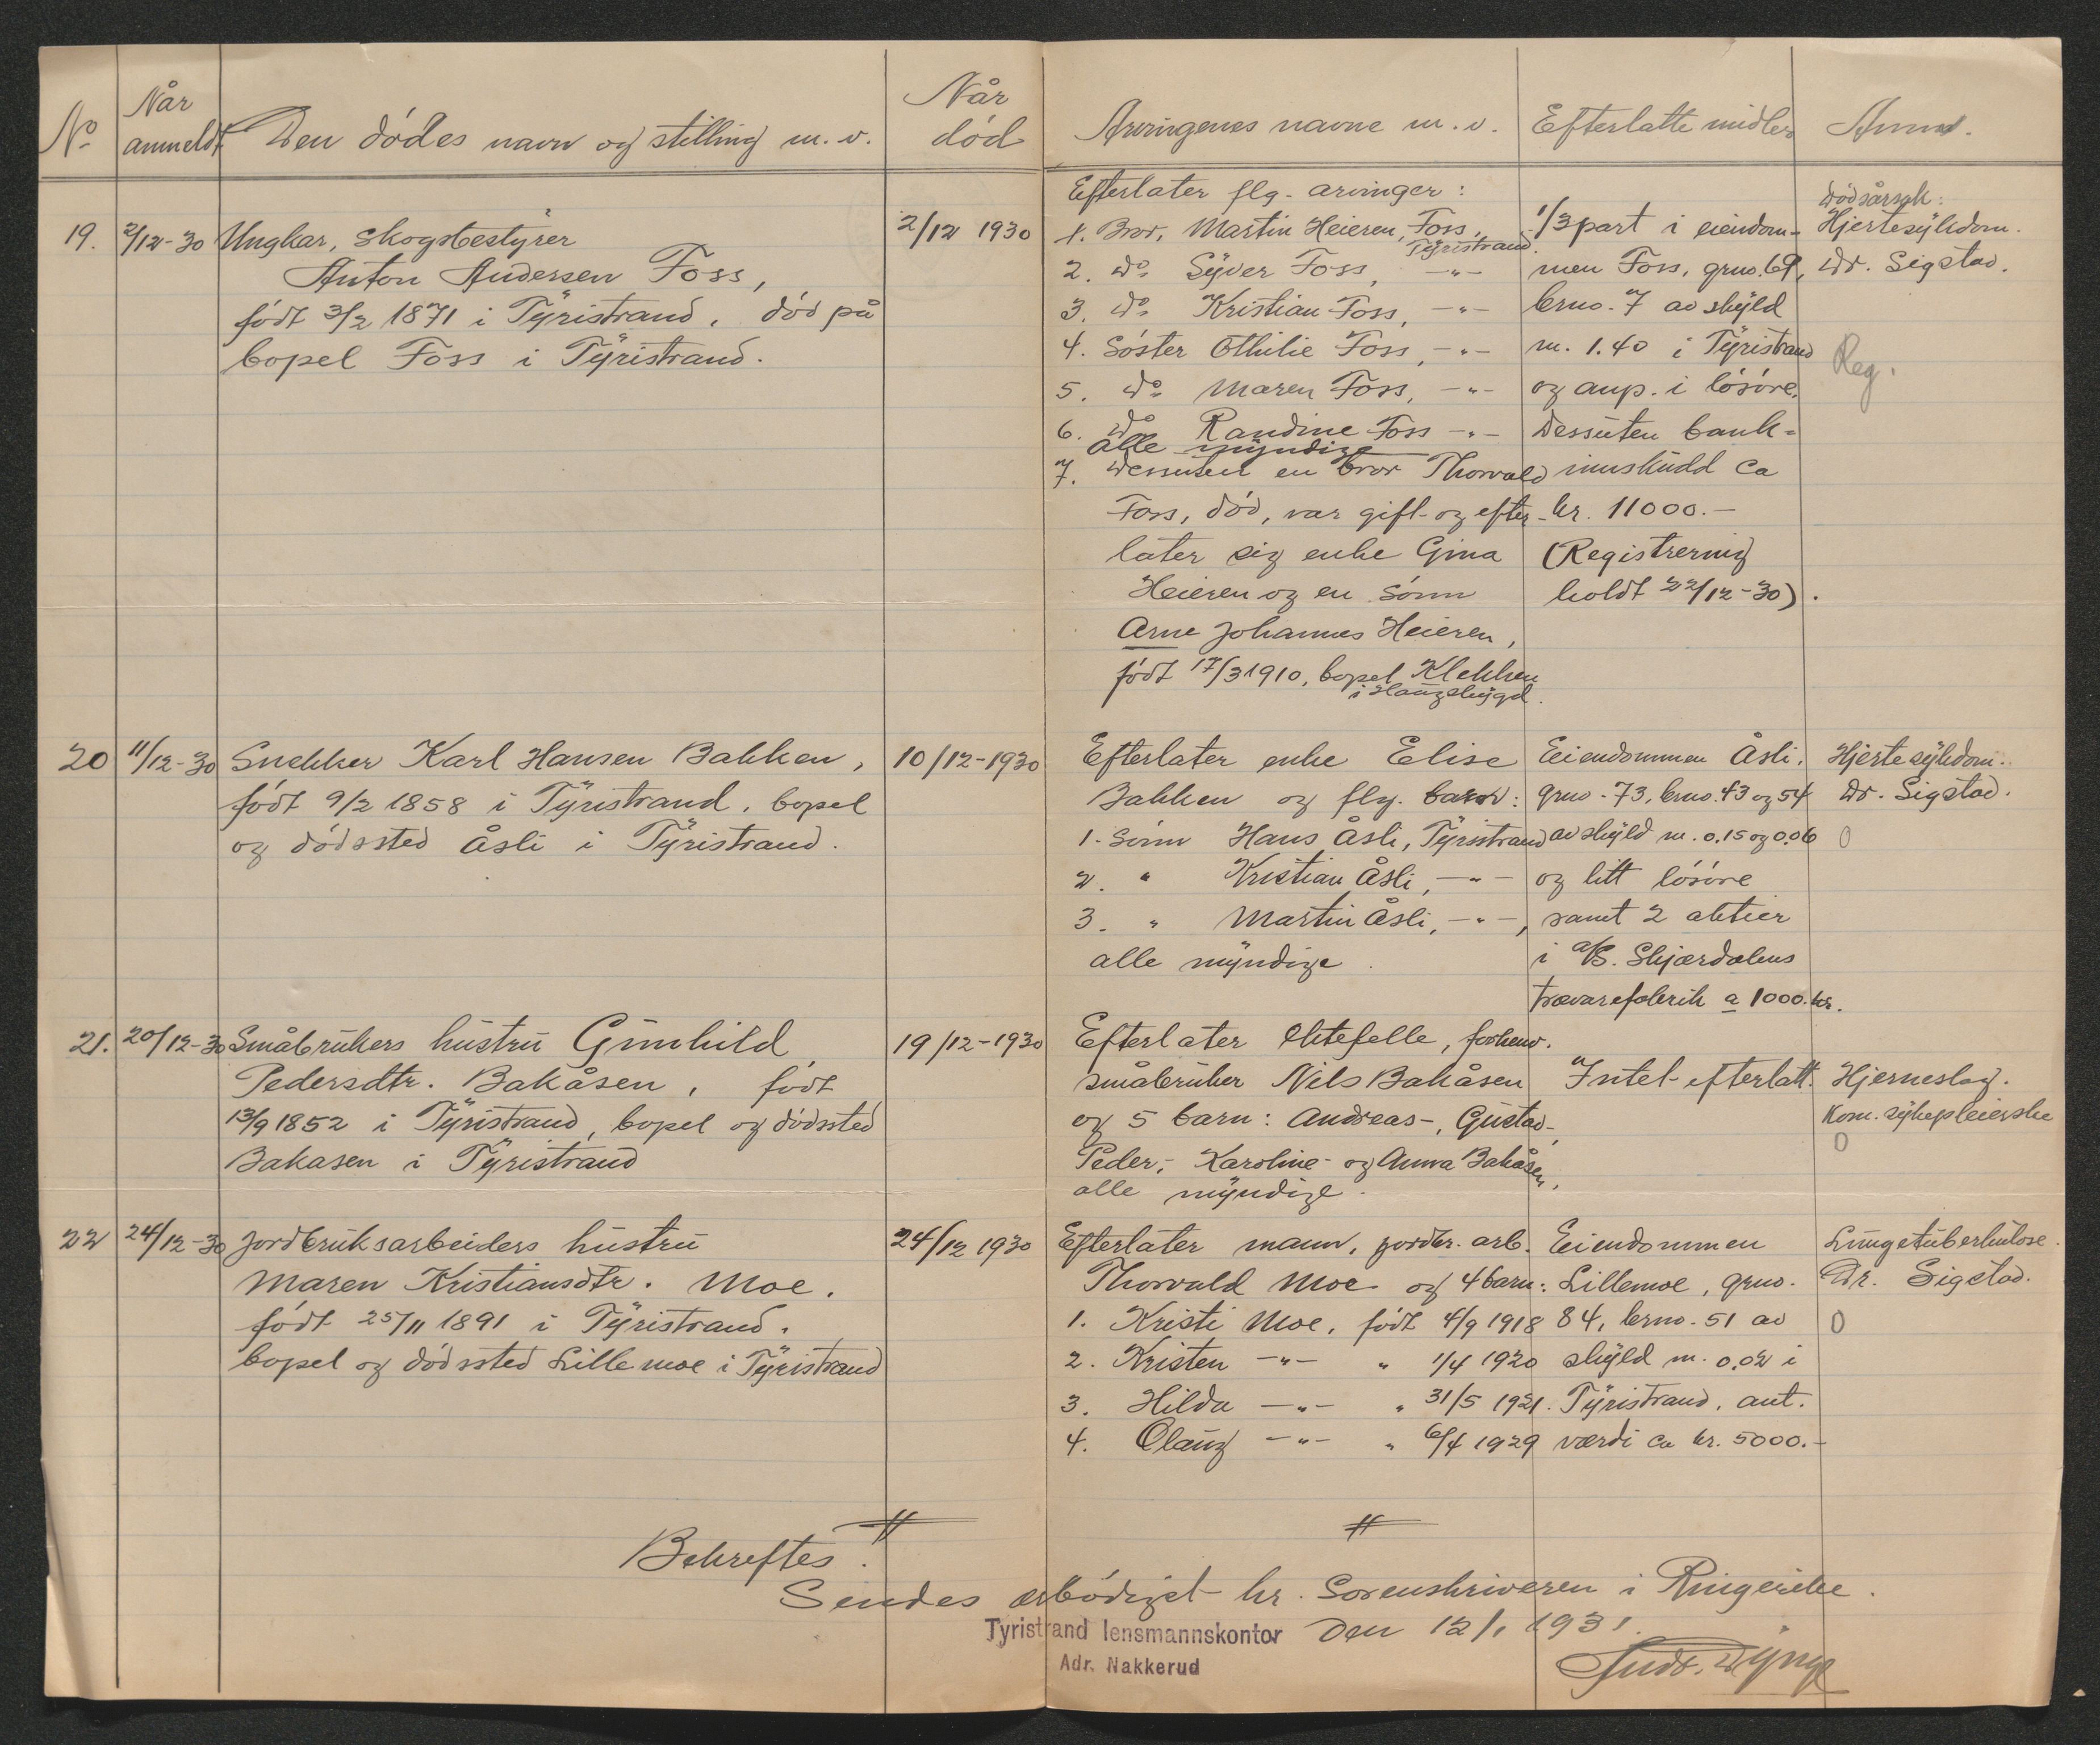 No
Når anmeldt
Den dødes navn og stilling m. v.
Når død
Arvingenes navne m. v.
Efterlatte midler
Anm.
19.
2/12-30
Ungkar, skogsbestyrer
Anton Andersen Foss,
født 3/2 1871 i Tyristrand, død på
bopel Foss i Tyristrand.
2/12 1930
Efterlater flg. arvinger:
1. Bror, Martin Heieren, Foss, Tyristrand.
2. do Syver Foss, -"-
3. do Kristian Foss, -"-
4. Søster Othilie Foss, -"-
5. do Maren Foss, -"-
6. do Randine Foss -"-
alle myndige
7. Dessuten en bror Thorvald
Foss, død, var gift og efter-
later sig enke Gina
Heieren og en sønn
Arne Johannes Heieren,
født 17/3 1910, bopel Klekken
i Haugsbygd.
1/3 part i eiendom-
men Foss, grno. 69,
brno. 7 av skyld
m. 1.40 i Tyristrand
og anp. i løsøre.
Dessuten bank-
innskudd ca
kr. 11000.-
(Registrering
holdt 22/12-30).
Dødsårsak:
Hjertesykdom.
Dr. Sigstad.
Reg.
20
11/12-30
Snekker Karl Hansen Bakken,
født 9/2 1858 i Tyristrand, bopel
og dødssted Åsli i Tyristrand.
10/12-1930
Efterlater enke Elise
Bakken og flg. barn:
1. Sønn Hans Åsli, Tyristrand
2. " Kristian Åsli, -"-
3. " Martin Åsli, -"-,
alle myndige.
Eiendommen Åsli,
grno. 73, brno. 43 og 54
av skyld m. 0,15 og 0,06
og litt løsøre
samt 2 aktier
i A/S. Skjærdalens
trævarefabrik a 1000.kr.
Hjertesykdom.
Dr. Sigstad.
0
21.
20/12-30
Småbrukers hustru Gunhild
Pedersdtr. Bakåsen, født
13/9 1852 i Tyristrand, bopel og dødssted
Bakåsen i Tyristrand
19/12-1930
Efterlater ektefelle, forhenv.
småbruker Nils Bakåsen
og 5 barn: Andreas-, Gustav-,
Peder-, Karoline- og Anna Bakåsen,
alle myndige.
Intet efterlatt.
Hjerneslag.
Kom. sykepleierske
0
22
24/12-30
Jordbruksarbeiders hustru
Maren Kristiansdtr. Moe,
født 25/11 1891 i Tyristrand,
bopel og dødssted Lillemoe i Tyristrand
24/12 1930
Efterlater mann, jordbr. arb.
Thorvald Moe og 4 barn:
1. Kristi Moe, født 4/9 1918
2. Kristen -"- " 1/4 1920
3. Hilda -"- " 31/5 1921.
4. Olaug -"- " 6/4 1929
Eiendommen
Lillemoe, grno.
84, brno. 51 av
skyld m. 0,02 i
Tyristrand, ant.
værdi ca kr. 5000.-
Lungetuberkulose.
Dr. Sigstad.
0
Bekreftes.
Sendes ærbødigst hr. Sorenskriveren i Ringerike.
Tyristrand lensmannskontor den 12/1 1931.
Adr. Nakkerud